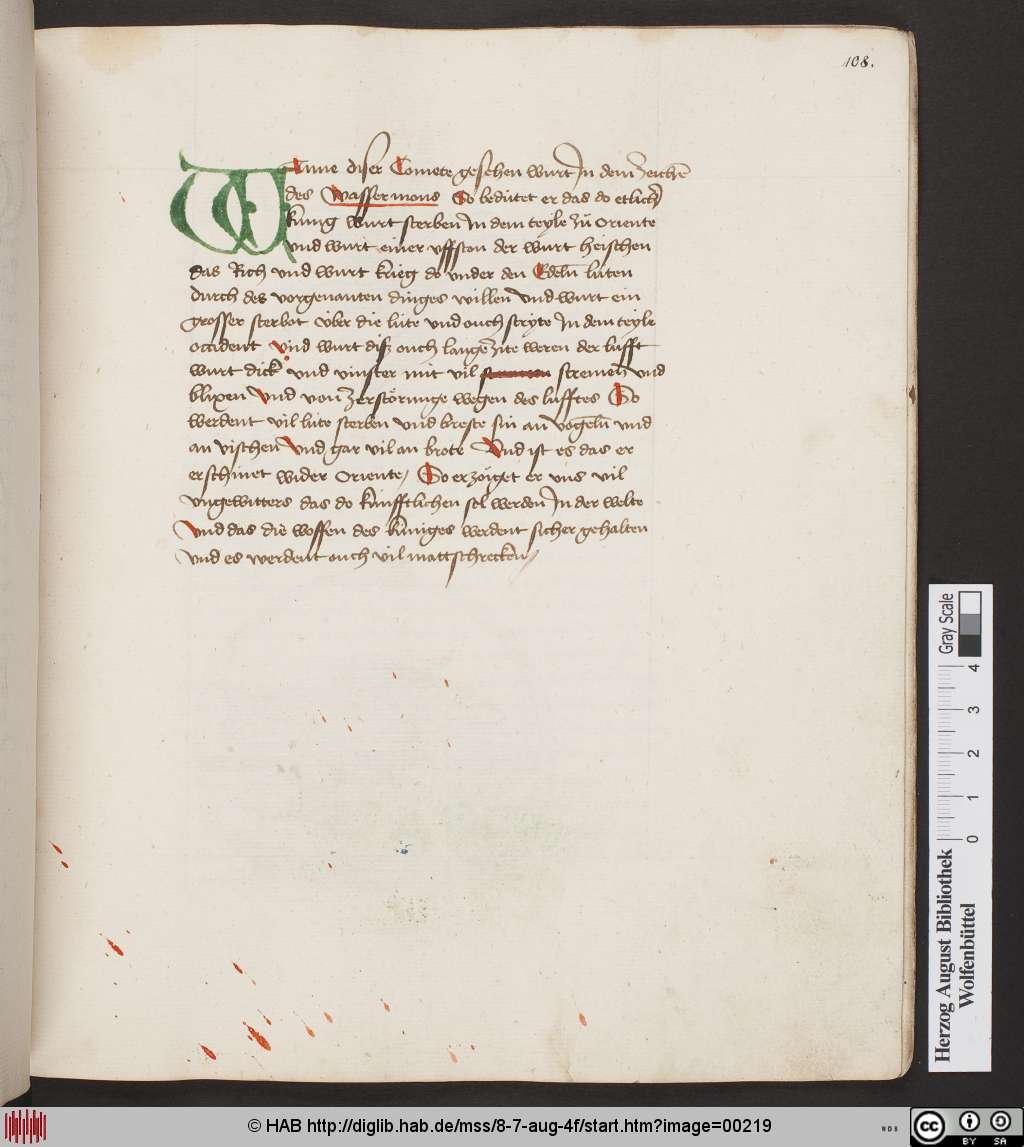 108.
WEnne diser Comete gesehen wurt In dem Zeichē
des Wassermons So bedútet er das do etlich
kúnig wurt sterben In dem teyle zů Oriente
vnd wurt einer vffston der wurt heischen
das Rich vnd wurt krieg do vnder den Edeln̄ lúten
durch des vorgenanten dinges willen vnd wurt ein
grosser sterbot úber die lúte vnd ouch stryte In dem teyle
occident Vnd wurt dis ouch lange zite weren der lufft
wurt dick vnd vinster mit vil stremen vnd
blixen Vnd von zerstörunge wegen des lufftes So
werdent vil lúte sterben vnd breste sin an vogeln̄ vnd
an vischen Vnd gar vil an brote Vnd ist es das er
erschinet wider Oriente / So erzöiget er vns vil
vngewitters das do kúnfftlichen sol werden In der welte
Vnd das die woffen des kúniges werdent sicher gehalten
vnd es werdent ouch vil mattschrecken /
Gray Scale
0 1 2 3 4
Herzog August Bibliothek
Wolfenbüttel
© HAB http://diglib.hab.de/mss/8-7-aug-4f/start.htm?image=00219
WDB
cc BY SA